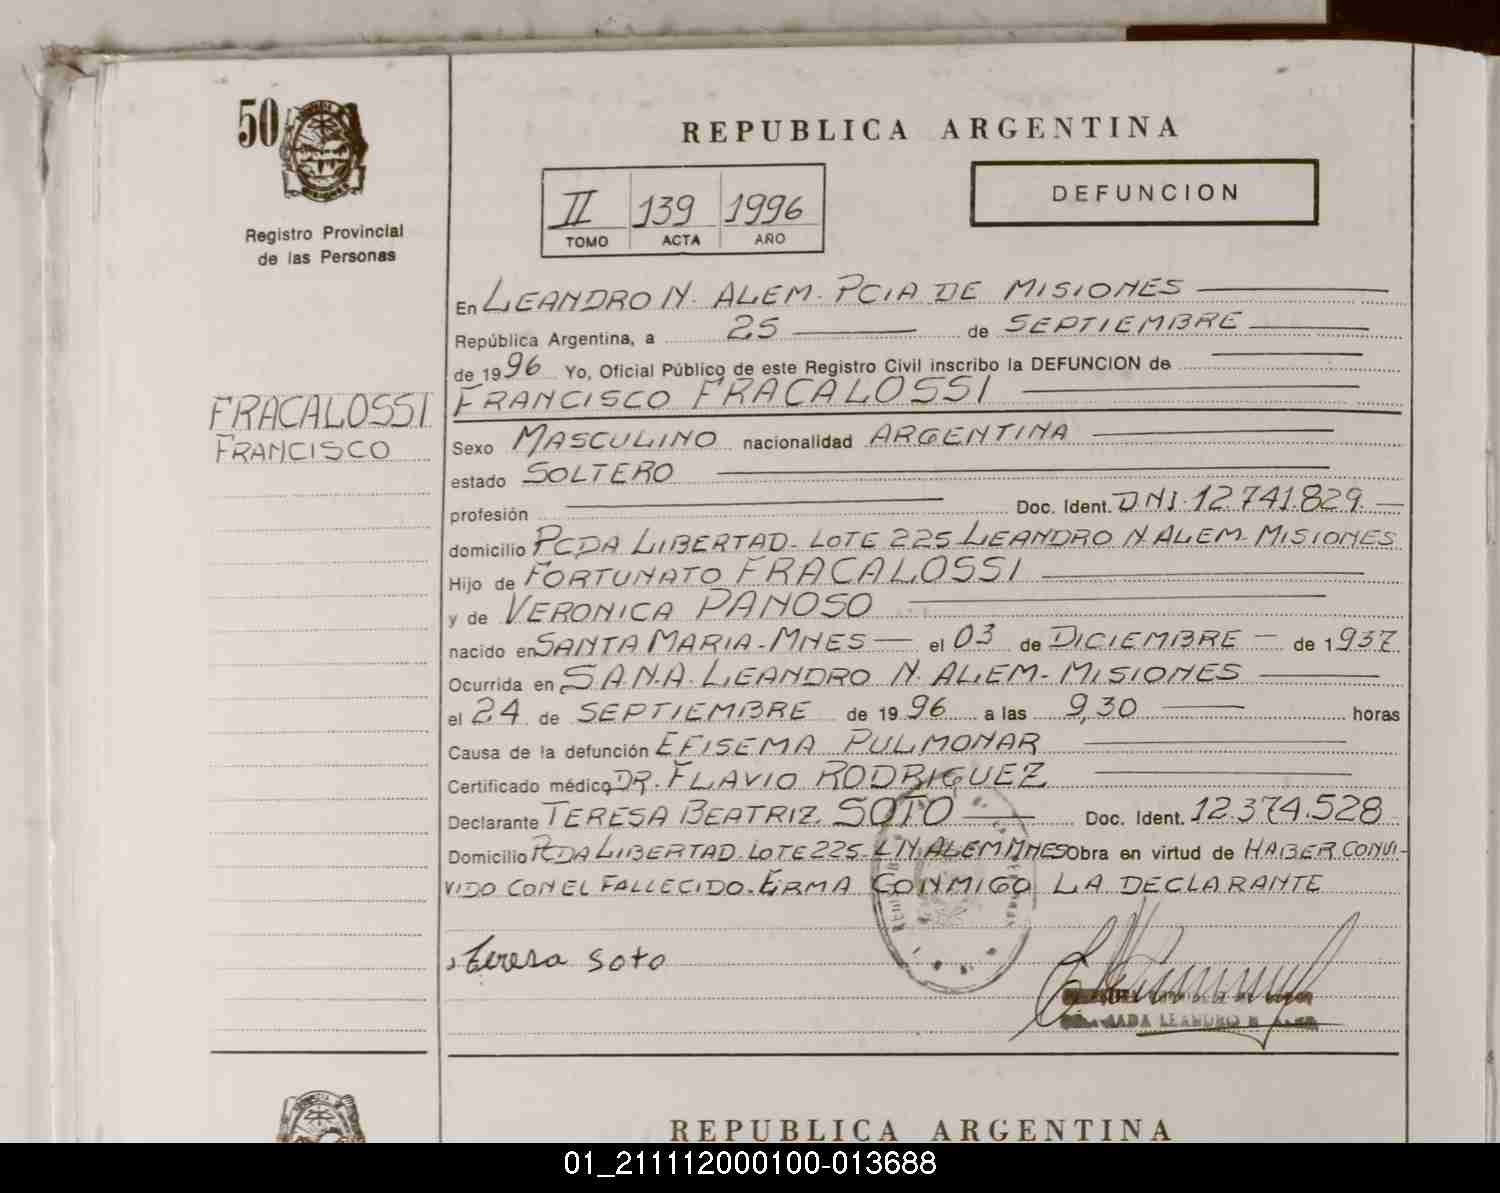 50
Registro Provincial
de las Personas
REPUBLICA ARGENTINA
II 139 1996
TOMO ACTA AÑO
DEFUNCION
En LEANDRO N. ALEM. PCIA DE MISIONES
República Argentina, a 25 de SEPTIEMBRE
de 1996 Yo, Oficial Público de este Registro Civil inscribo la DEFUNCION de
FRANCISCO FRACALOSSI
FRACALOSSI
FRANCISCO
Sexo MASCULINO nacionalidad ARGENTINA
estado SOLTERO
profesión Doc. Ident. DNI. 12.741.829.
domicilio PCDA LIBERTAD- LOTE 225 LEANDRO N ALEM- MISIONES
Hijo de FORTUNATO FRACALOSSI
y de VERONICA PANOSO
nacido en SANTA MARIA-MNES el 03 de DICIEMBRE de 1937
Ocurrida en S.A.N.A. LEANDRO N. ALEM- MISIONES
el 24 de SEPTIEMBRE de 1996 a las 9,30 horas
Causa de la defunción EFISEMA PULMONAR
Certificado médico DR. FLAVIO RODRIGUEZ
Declarante TERESA BEATRIZ SOTO Doc. Ident. 12.374.528
Domicilio PCDA LIBERTAD. LOTE 225- L N. ALEM MNES Obra en virtud de HABER CONVI-
VIDO CON EL FALLECIDO. FIRMA CONMIGO LA DECLARANTE
Teresa Soto
LEANDRO N. ALEM
REPUBLICA ARGENTINA
01_211112000100-013688